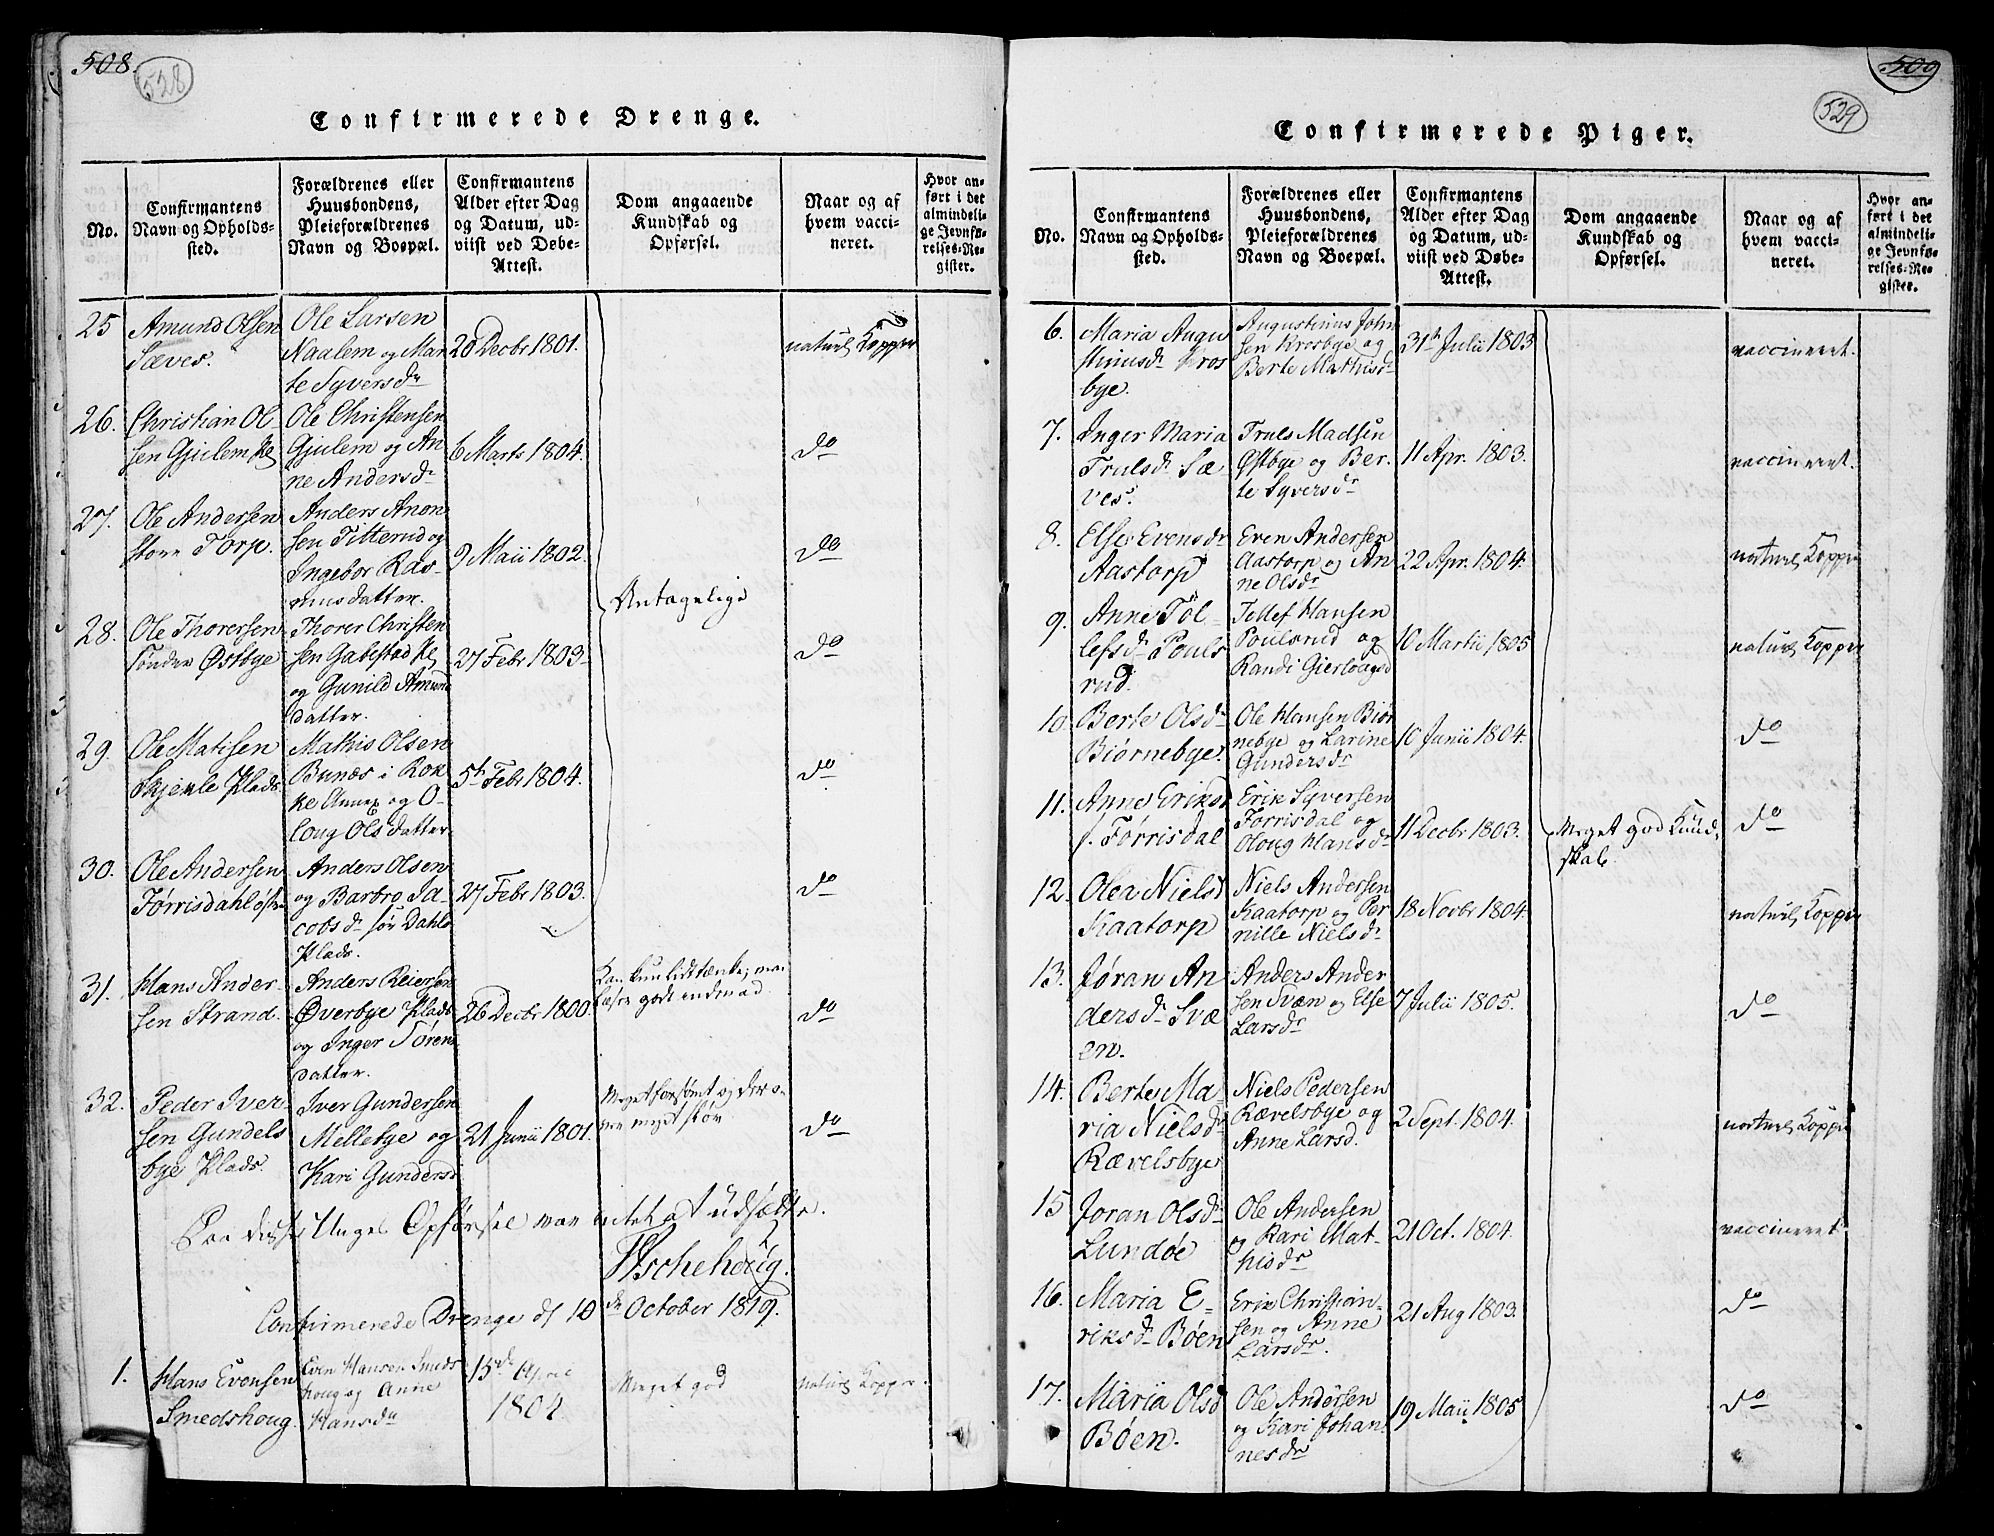 508.
528
Confirmerede Drenge.
No.
Confirmantens
Navn og Opholds-
sted.
Forældrenes eller
Huusbondens,
Pleieforældrenes
Navn og Boepæl.
Confirmantens
Alder efter Dag
og Datum, ud-
viist ved Døbe-
Attest.
Dom angaaende
Kundskab og
Opførsel.
Naar og af
hvem vacci-
neret.
Hvor an-
ført i det
almindeli-
ge Jevnfø-
relses-Re-
gister.
25
Amund Olsen
Sæves.
Ole Larsen
Naalem og Mar
te Syversdr
20 Decbr 1801.
naturl Kopper
26.
Christian Ol
sen Gjulem
Ole Christensen
Gjulem og An
ne Andersdr
6 Marts 1804.
do
27.
Ole Andersen
store Torp.
Anders Anon
sen Titterud og
Ingebor Ras
musdatter.
9 Maii 1802.
do
Antagelige
28.
Ole Thorersen
Sønder Østbye
Thorer Christen
sen Gabestad
og Gunild Amund
datter.
27 Febr 1803.
do
29.
Ole Matisen
Skjekle Plads
Mathis Olsen
Bunæs i Rok
ke Annex og O-
loug Olsdatter
5t Febr 1804.
do
30.
Ole Andersen
Tørrisdahl
Anders Olsen
og Barbro Ja
cobsdr sør Dahls
Plads.
27 Febr 1803.
do
31.
Hans Ander-
sen Strand.
Anders Reiersen
Øverbye Plads
og Inger Sørens
datter.
26 Decbr 1800.
Kan kun lidt tænke, men
læser godt indenad.
do
32.
Peder Iver-
sen Gundels
bye Plads.
Iver Gundersen
Mellebye og
Kari Gundersd
21 Junii 1801.
Meget forsømt og der
meget sløv
do
Paa disse Unges Opførsel var intet at udsætte.
Confirmerede Drenge d 10de October 1819.
1.
Hans Evensen
Smedshoug.
Even Hansen Smeds
houg og Anne
Hansdr
15de April
1804.
Meget god
naturl Kopper.
509
529
Confirmerede Piger.
No.
Confirmantens
Navn og Opholds-
sted.
Forældrenes eller
Huusbondens,
Pleieforældrenes
Navn og Boepæl.
Confirmantens
Alder efter Dag
og Datum, ud-
viist ved Døbe-
Attest.
Dom angaaende
Kundskab og
Opførsel.
Naar og af
hvem vacci-
neret.
Hvor an-
ført i det
almindeli-
ge Jevnfø-
relses-Re-
gister.
6.
Maria Augu
stinusdr Kros
bye.
Augustinus John
sen Krosbye og
Berte Mathisdr
31th Julii 1803
vaccineret.
7.
Inger Maria
Trulsdr Sæ
ves.
Truls Madsen
Østbye og Ber-
te Syversdr
11 Apr. 1803.
vaccineret.
8.
Else Evensdr
Aastorp
Even Andersen
Aastorp og An
ne Olsdr
22 Apr. 1804.
naturl Kopper
9.
Anne Tol
lefsdr Pouls
rud.
Tollef Hansen
Poulsrud og
Randi Gierlougsd
10 Martii 1805
naturl Kopper
10.
Berte Olsdr
Biørnebye.
Ole Hansen Biør
nebye og Larine
Gundersdr
10 Junii 1804.
do
11.
Anne Eriksd
s. Tørrisdal
Erik Syversen
Tørrisdal og
Oloug Hansdr
11 Decbr 1803.
Meget god Kund-
skab.
do
12.
Olea Nielsd
Kaatorp
Niels Andersen
Kaatorp og Per
nille Nielsdr
18 Novbr 1804.
naturl Kopper
13.
Jøran An
dersdr Svæ
en.
Anders Ander
sen Svæn og Else
Larsdr
7 Julii 1805.
do
14.
Berte Ma-
ria Nielsdr
Rævelsbye
Niels Pedersen
Rævelsbye og
Anne Larsd.
2 Sept. 1804.
naturl Kopper
15
Joran Olsdr
Lundøe
Ole Andersen
og Kari Mat-
hisdr
21 Oct. 1804.
vaccineret
16.
Maria E-
riksdr Bøen
Erik Christian-
sen og Anne
Larsdr.
21 Aug 1803.
do
17.
Maria Olsd
Bøen.
Ole Andersen
og Kari Johan-
nesdr
19 Maii 1805
do